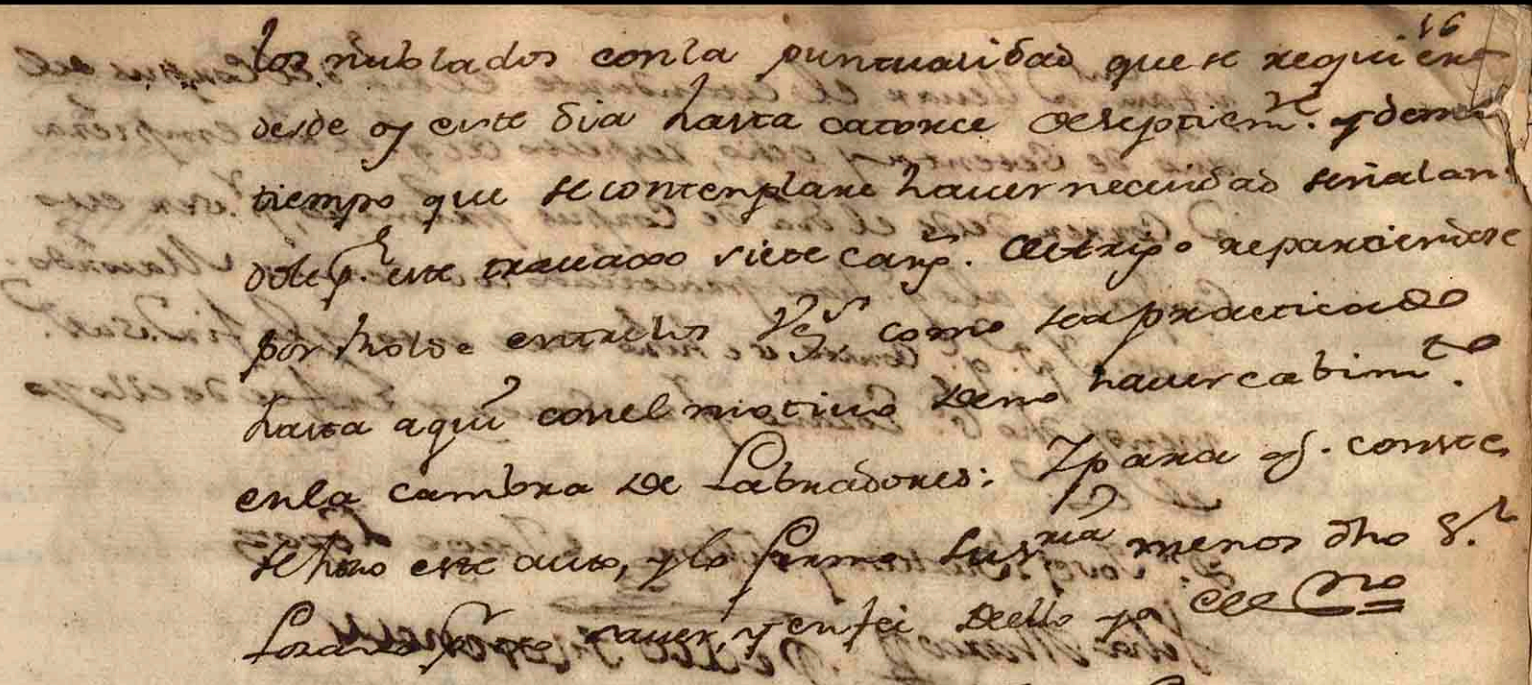 16
los nublados con la puntualidad que se requiere
desde oy este dia hasta catorce de septiem.re y demas
tiempo que se contemplare haver necesidad señalan
dole p.r este travaxo siete cañ.s de trigo repartiendose
por molde entre los V.s como se a practicado
hasta aqui con el motivo de no haver cabim.to
en la cambra de Labradores: Y para q.e conste
se hizo este auto, y lo firmo su s.ria menos dho S.r
Lozano por no saver, y en fei dello yo el Ess.no